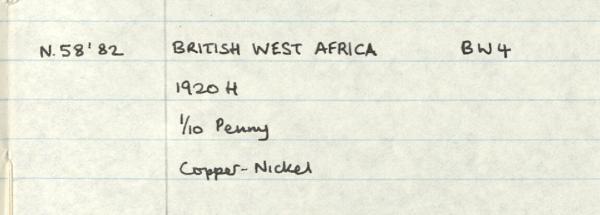 N.58'82 BRITISH WEST AFRICA BW4
1920 H
1/10 Penny
Copper-Nickel